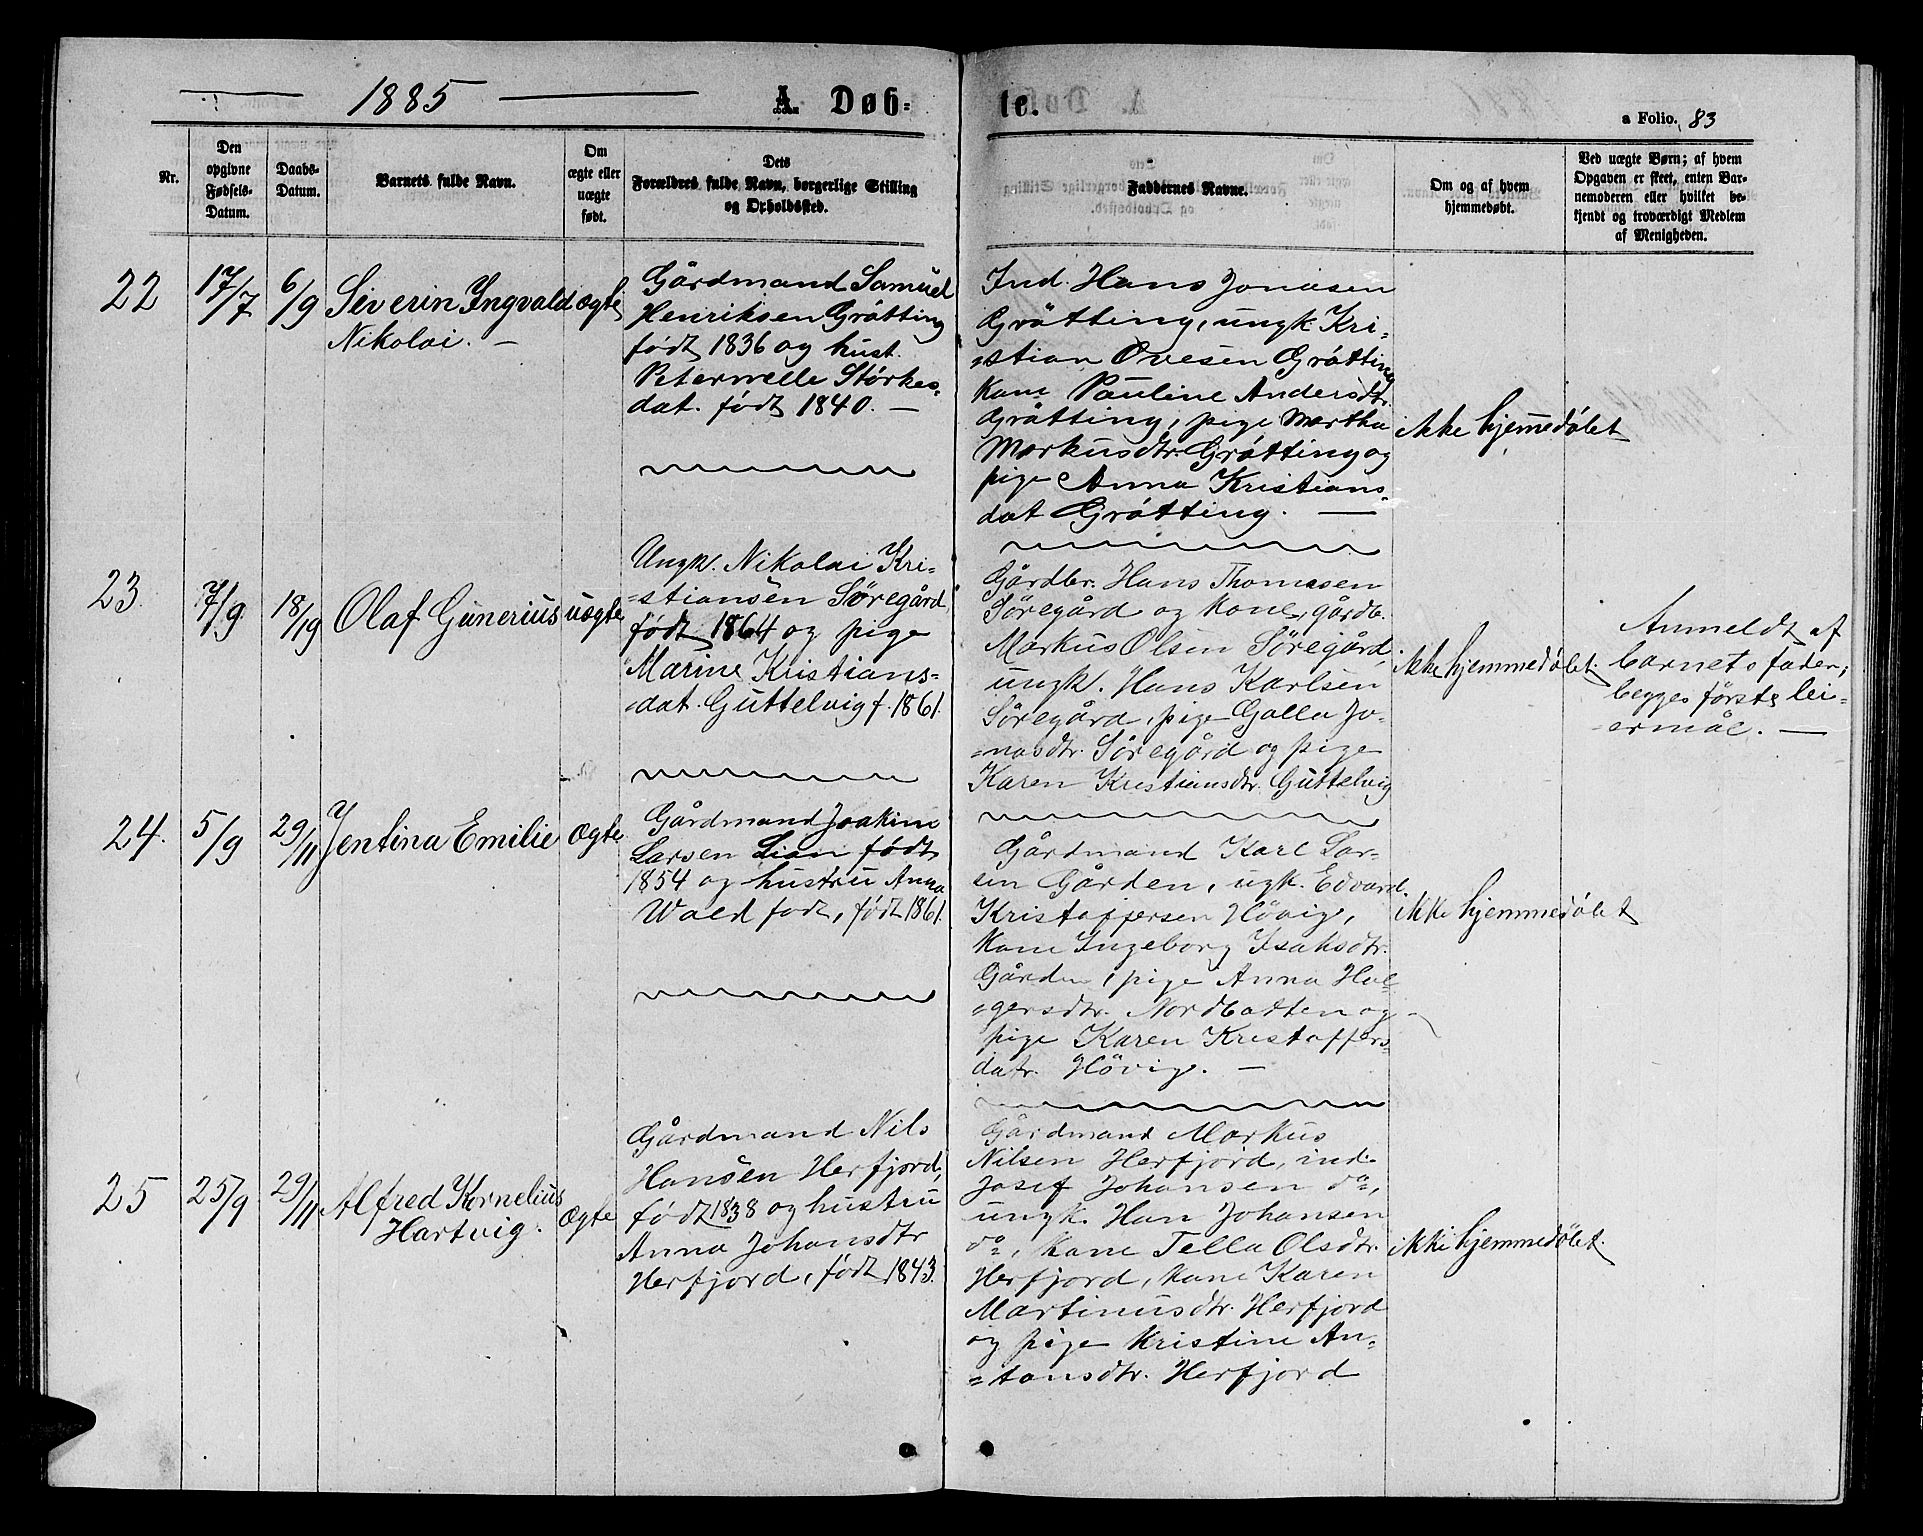 1885 A. Døb=
te.
a Folio. 83
Nr.
Den opgivne Fødsels-Datum.
Daabs-Datum.
Barnets fulde Navn.
Om ægte eller uægte født.
Dets Forældres fulde Navn, borgerlige Stilling og Opholdssted.
Faddernes Navne.
Om og af hvem hjemmedøbt.
Ved uægte Børn; af hvem Opgaven er skeet, enten Barnemoderen eller hvilket bekjendt og troværdigt Medlem af Menigheden.
22
17/7
6/9
Severin Ingvald
Nikolai. —
Ægte
Gårdmand Samuel
Henriksen Gråtting
født 1836 og hust.
Peternelle Störkes-
dat. født 1840. —
Ind. Hans Jonasen
Gråtting, ungk. Kri-
=stian Ovesen Gråtting
Kone Pauline Andersdtr.
Gråtting, pige Martha
Markusdtr. Gråtting og
pige Anna Kristians-
dat Gråtting. —
ikke hjemmedøbt
23.
7/9
18/19
Olaf Gunerius
uægte
Ungk. Nikolai Kri-
=stiansen Söregård,
født 1864 og pige
Marine Kristians=
=dat. Guttelvig f. 1861.
Gårdbr. Hans Thomasen
Söregård og kone, gårdb.
Markus Olsen Söregård,
ungk. Hans Karlsen
Söregård, pige Golla Jo-
=nasdtr. Söregård og pige
Karen Kristiansdtr. Guttelvig
ikke hjemmedøbt.
Anmeldt af
barnets fader;
begges første lei-
ermål. —
24.
5/9
29/11
Jentina Emilie
Ægte
Gårdmand Joakim
Larsen Lian født
1854 og hustru Anna
Wold født, født 1861.
Gårdmand Karl Lar-
sen Gården, ugk. Edvard
Kristoffersen Hövig,
kone Ingeborg Isaksdtr.
Gården, pige Anna Hol-
=gersdtr. Nordbotten og
pige Karen Kristoffers-
datr. Hövig. —
ikke hjemmedøbt
25
25/9
29/11
Alfred Kornelius
Hartvig.
Ægte
Gårdmand Nils
Hansen Herfjord,
født 1838 og hustru
Anna Johansdtr
Herfjord, født 1843.
Gårdmand Markus
Nilsen Herfjord, ind.
Josef Johansen do,
ungk. Han Johansen
do, kone Tella Olsdtr.
Herfjord, kone Karen
Martinusdtr. Herfjord
og pige Kristine An-
=tonsdtr. Herfjord
ikke hjemmedøbt.